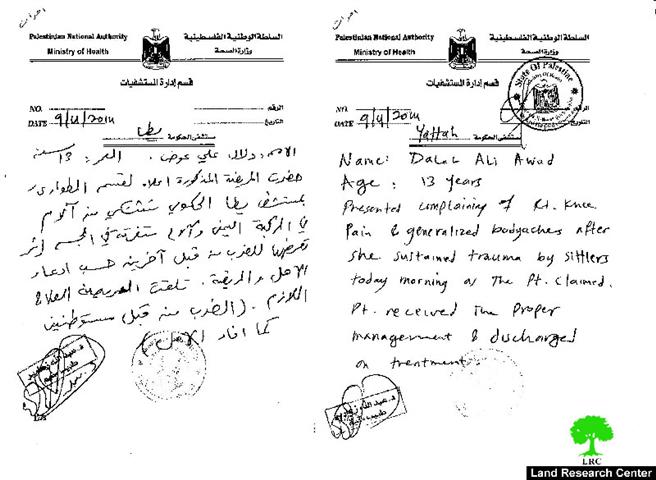 Palestinian National Authority
Ministry of Health
السلطة الوطنية الفلسطينية
وزارة الصحة
قسم إدارة المستشفيات
NO.
الرقم
DATE 9/4/2014
التاريخ
مستشفى الحكومة يطا
الاسم: دلال علي عوض. العمر: 13 سنة
حضرت المريضة المذكورة اعلاه لقسم الطوارئ
بمستشفى يطا الحكومي تشتكي من آلام
في الركبة اليمنى وآلام متفرقة في الجسم اثر
تعرضها للضرب من قبل آخرين حسب ادعاء
الاهل والمريضة. تلقت المريضة العلاج
اللازم. (الضرب من قبل مستوطنين
كما افاد الاهل)
Palestinian National Authority
Ministry of Health
السلطة الوطنية الفلسطينية
وزارة الصحة
قسم إدارة المستشفيات
State Of Palestine
NO.
الرقم
DATE 9/4/2014
التاريخ
Yattah مستشفى الحكومة
Name: Dalal Ali Awad
Age: 13 years
Presented complaining of Rt. Knee
Pain & generalized bodyaches after
she sustained trauma by sittlers
today morning as The Pt. claimed.
Pt. received The proper
management & discharged
on treatment.
LRC
Land Research Center